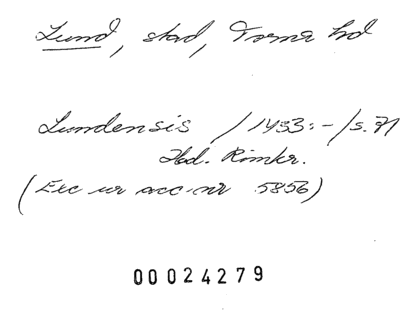 Lund, stad, Torna hd
Lundensis /1433:-/ s. 71
Hd. Rimkr.
(Exc ur acc.nr 5856)
00024279